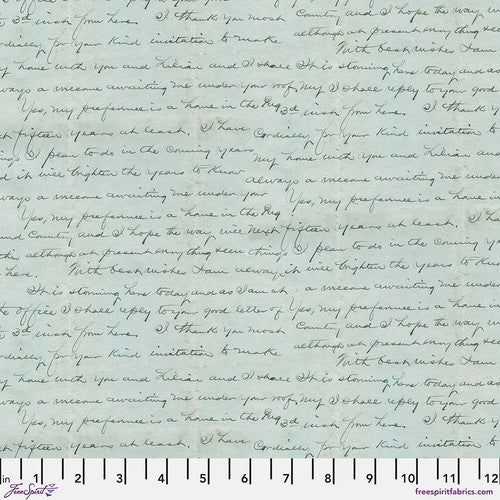 3rd inst from here. I thank you most County, and I hope the way w
Cordially for your kind invitation to make although at present everything see
With best wishes I am
my home with you and Lilian and I shall It is storming here today and as
always a welcome awaiting me under your roof, my I shall reply to your good
Yes, my preference is a house in the 3rd inst from here. I thank y
fifteen years at least. I have Cordially for your kind invitation to
things I plan to do in the coming years my home with you and Lilian and
d it will brighten the years to know always a welcome awaiting me under
always a welcome awaiting me under your Yes, my preference is a house in
Yes, my preference is a house in the
and County, and I hope the way will next fifteen years at least. I
although at present everything seem things I plan to do in the coming y
here. With best wishes I am always it will brighten the years to know
It is storming here today and as I am at a welcome awaiting me under
the office I shall reply to your good letter of Yes, my preference is a house in
3rd inst from here. I thank you most County, and I hope the way w
Cordially for your kind invitation to make although at present everything see
With best wishes I am
my home with you and Lilian and I shall It is storming here today and as
always a welcome awaiting me under your roof, my I shall reply to your good
Yes, my preference is a house in the 3rd inst from here. I thank y
fifteen years at least. I have Cordially for your kind invitation to
in 1 2 3 4 5 6 7 8 9 10 11 12
FreeSpirit
freespiritfabrics.com